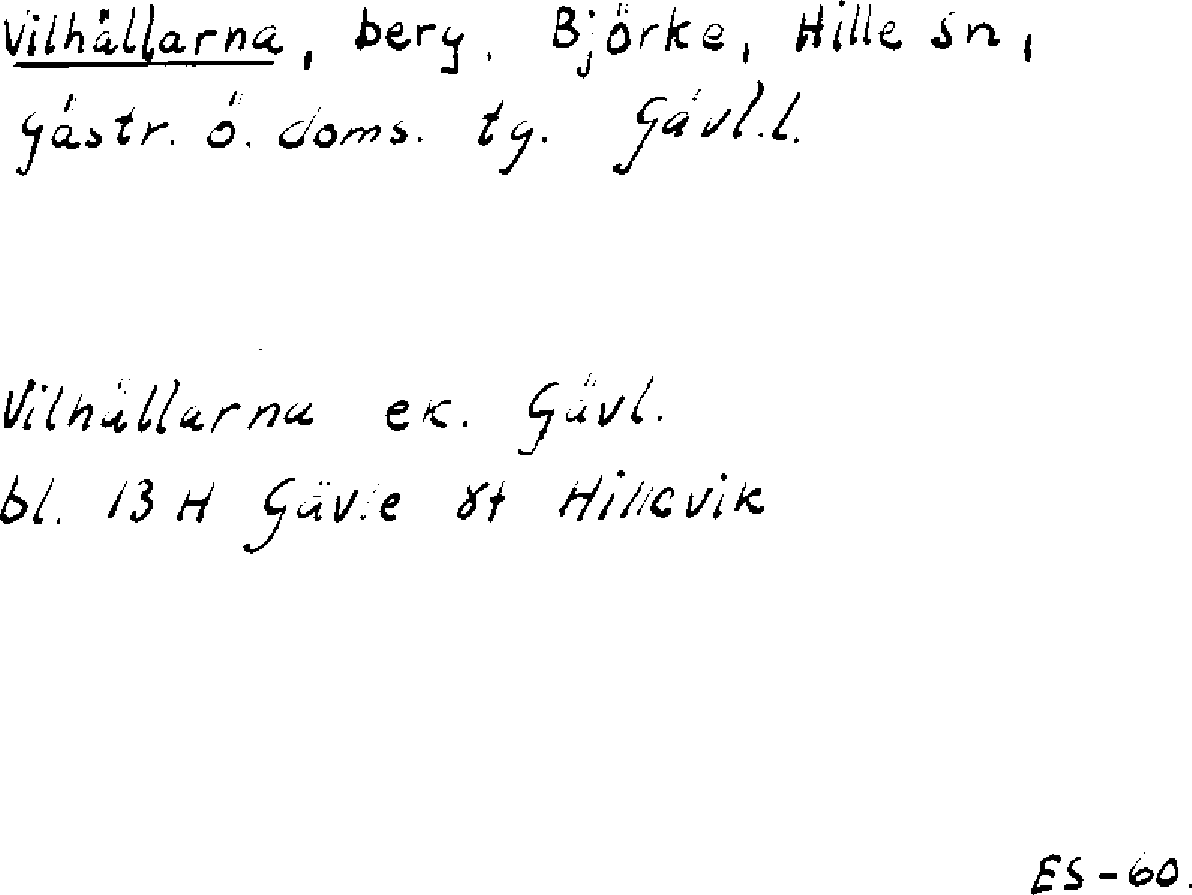 Vilhällarna, berg, Björke, Hille sn,
Gästr. ö. doms. tg. Gävl.l.
Vilhällarna ek. Gävl.
bl. 13 H Gävle Hillevik
ES-60.